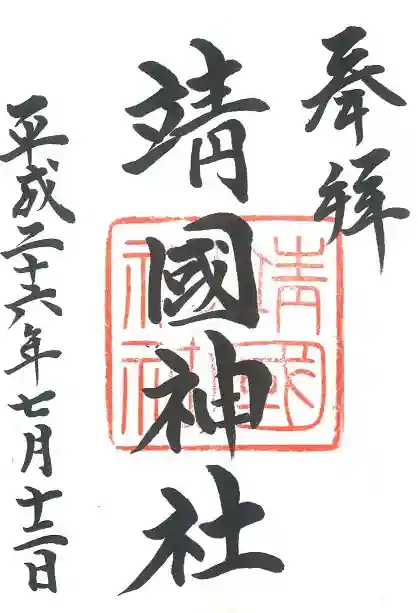 奉拝
靖國神社
靖國神社
平成二十六年七月十二日